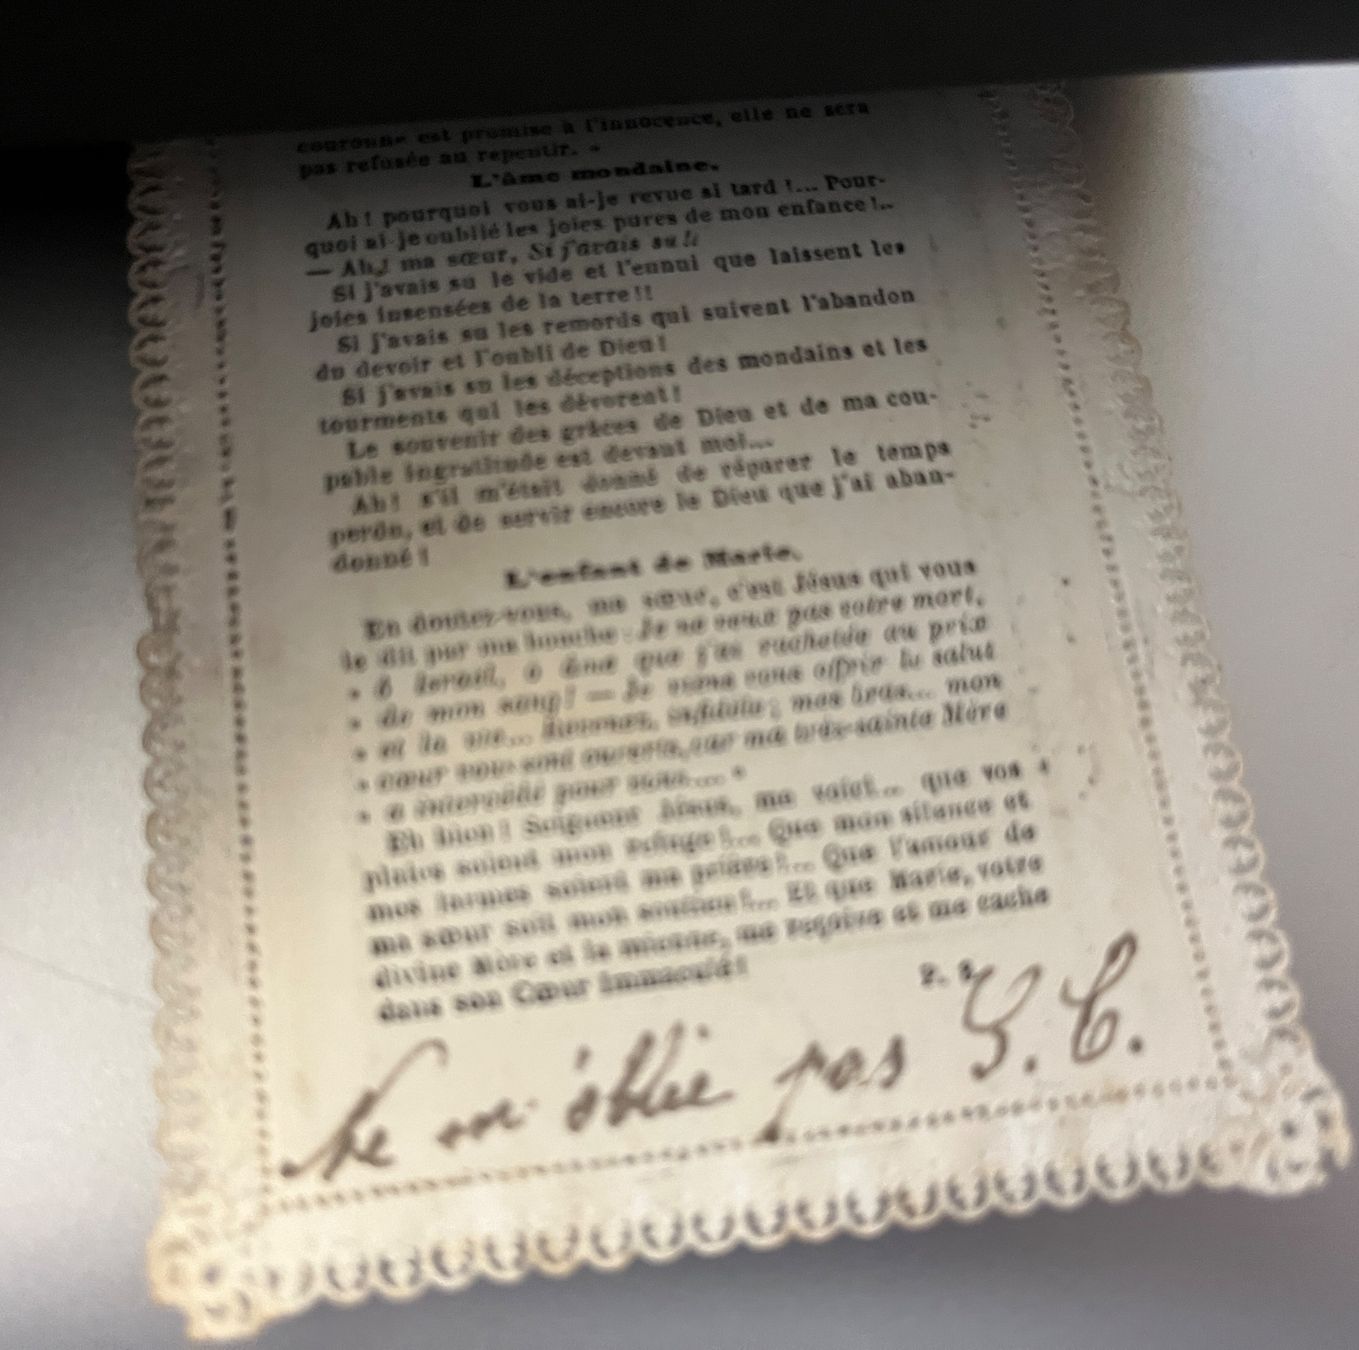 couronne est promise à l'innocence, elle ne sera
pas refusée au repentir. »
L'âme mondaine.
Ah ! pourquoi vous ai-je revue si tard !... Pour-
quoi ai-je oublié les joies pures de mon enfance !..
— Ah ! ma sœur, Si j'avais su !!
Si j'avais su le vide et l'ennui que laissent les
joies insensées de la terre !!
Si j'avais su les remords qui suivent l'abandon
du devoir et l'oubli de Dieu !
Si j'avais su les déceptions des mondains et les
tourments qui les dévorent !
Le souvenir des grâces de Dieu et de ma cou-
pable ingratitude est devant moi...
Ah ! s'il m'était donné de réparer le temps
perdu, et de servir encore le Dieu que j'ai aban-
donné !
L'enfant de Marie.
En doutez-vous, ma sœur, c'est Jésus qui vous
le dit par ma bouche : Je ne veux pas votre mort,
» ô Israël, ô âme que j'ai rachetée au prix
» de mon sang ! — Je viens vous offrir le salut
» et la vie... mes bras... mon
» cœur vous sont ouverts, car ma très-sainte Mère
» a intercédé pour vous.... »
Eh bien ! Seigneur Jésus, me voici... que vos
plaies soient mon refuge !... Que mon silence et
mes larmes soient ma prière !... Que l'amour de
ma sœur soit mon soutien !... Et que Marie, votre
divine Mère et la mienne, me reçoive et me cache
dans son Cœur immaculé !
P. S.
Ne m'oblie pas G. C.